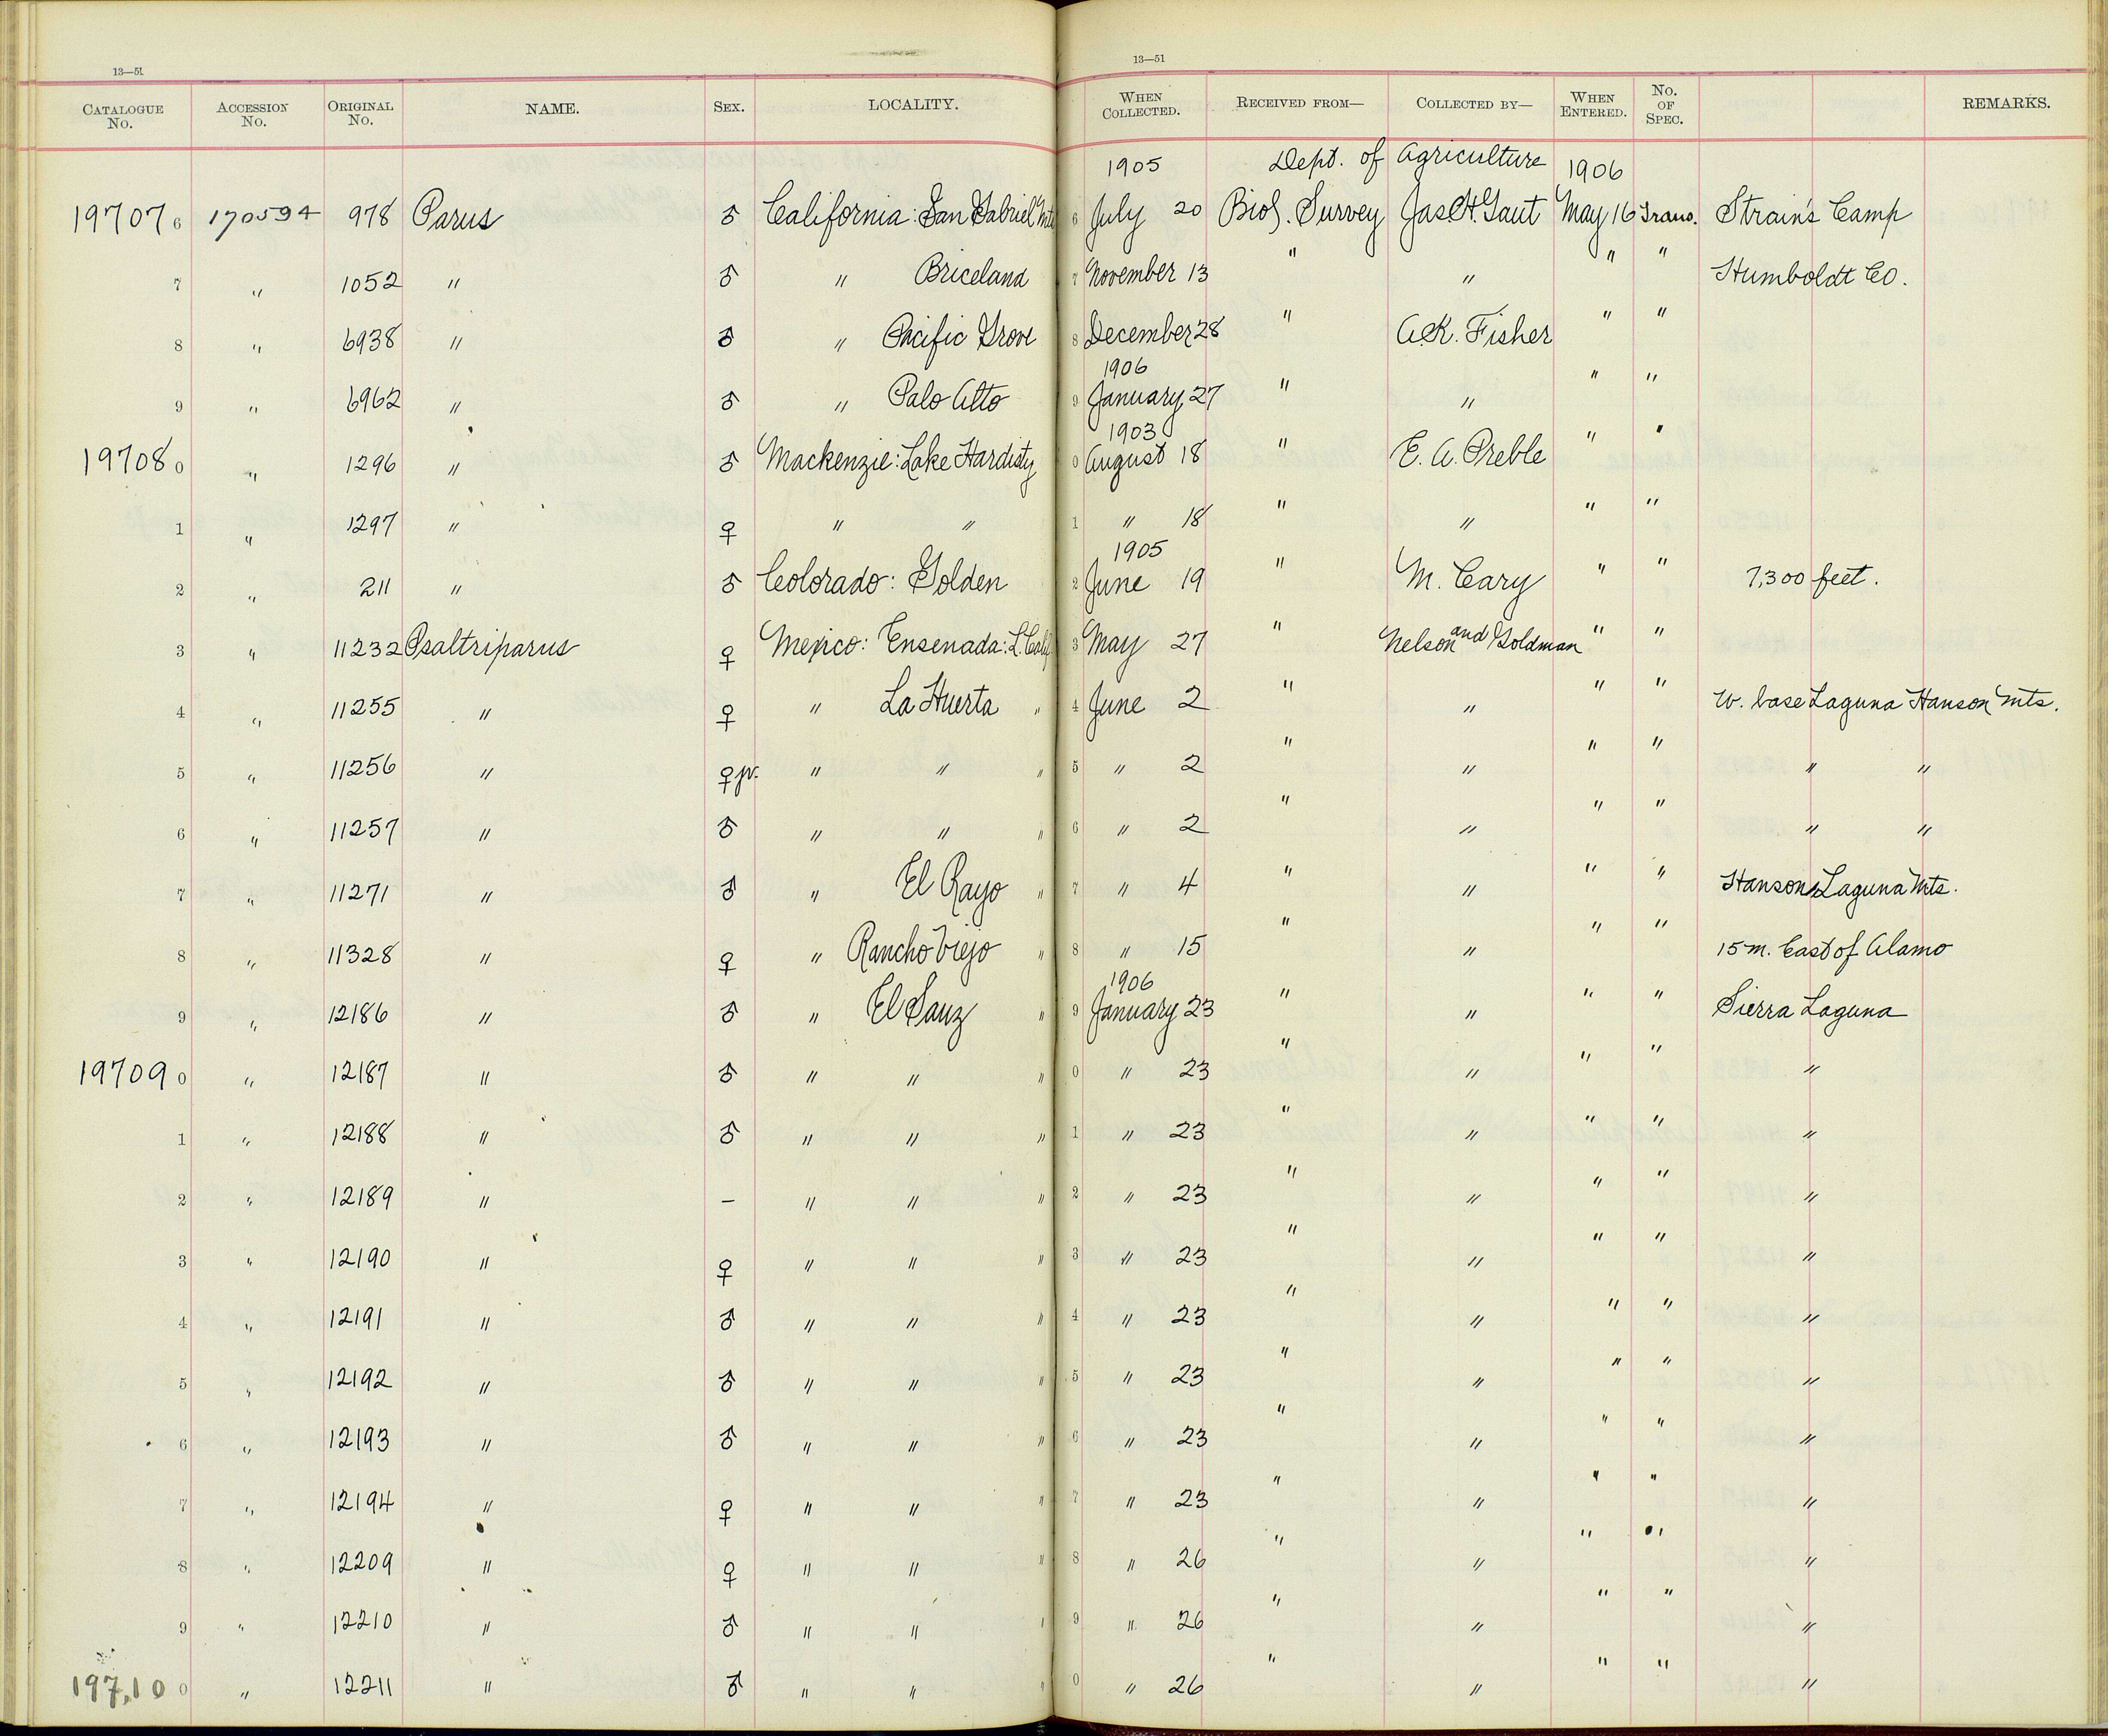 13—51 13—51
CATALOGUE No. ACCESSION No. ORIGINAL No. NAME. SEX. LOCALITY. WHEN COLLECTED. RECEIVED FROM— COLLECTED BY— WHEN ENTERED. No. OF SPEC. REMARKS.
1905 Dept. of Agriculture 1906
19707 6 170594 978 Parus ♂ California: San Gabriel Mts 6 July 20 Biol. Survey Jas. H. Gaut May 16 Trans. Strain's Camp
7 " 1052 " ♂ " Briceland 7 November 13 " " " " Humboldt Co.
8 " 6938 " ♂ " Pacific Grove 8 December 28 " A.K. Fisher " "
1906
9 " 6962 " ♂ " Palo Alto 9 January 27 " " " "
1903
19708 0 " 1296 " ♂ Mackenzie: Lake Hardisty 0 August 18 " E. A. Preble " "
1 " 1297 " ♀ " " 1 " 18 " " " "
1905
2 " 211 " ♂ Colorado: Golden 2 June 19 " M. Cary " " 7,300 feet.
3 " 11232 Psaltriparus ♀ Mexico: Ensenada: L. Calif 3 May 27 " Nelson and Goldman " "
4 " 11255 " ♀ " La Huerta " 4 June 2 " " " " W. base Laguna Hanson Mts.
5 " 11256 " ♀ jv. " " " 5 " 2 " " " " " "
6 " 11257 " ♂ " " " 6 " 2 " " " " " "
7 " 11271 " ♂ " El Rayo " 7 " 4 " " " " Hanson Laguna Mts.
8 " 11328 " ♀ " Rancho Viejo " 8 " 15 " " " " 15 m. East of Alamo
1906
9 " 12186 " ♂ " El Sauz " 9 January 23 " " " " Sierra Laguna
19709 0 " 12187 " ♂ " " " 0 " 23 " " " " "
1 " 12188 " ♂ " " " 1 " 23 " " " " "
2 " 12189 " – " " " 2 " 23 " " " " "
3 " 12190 " ♀ " " " 3 " 23 " " " " "
4 " 12191 " ♂ " " " 4 " 23 " " " " "
5 " 12192 " ♂ " " " 5 " 23 " " " " "
6 " 12193 " ♂ " " " 6 " 23 " " " " "
7 " 12194 " ♀ " " " 7 " 23 " " " " "
8 " 12209 " ♀ " " " 8 " 26 " " " " "
9 " 12210 " ♂ " " " 9 " 26 " " " " "
197,10 0 " 12211 " ♂ " " " 0 " 26 " " " " "